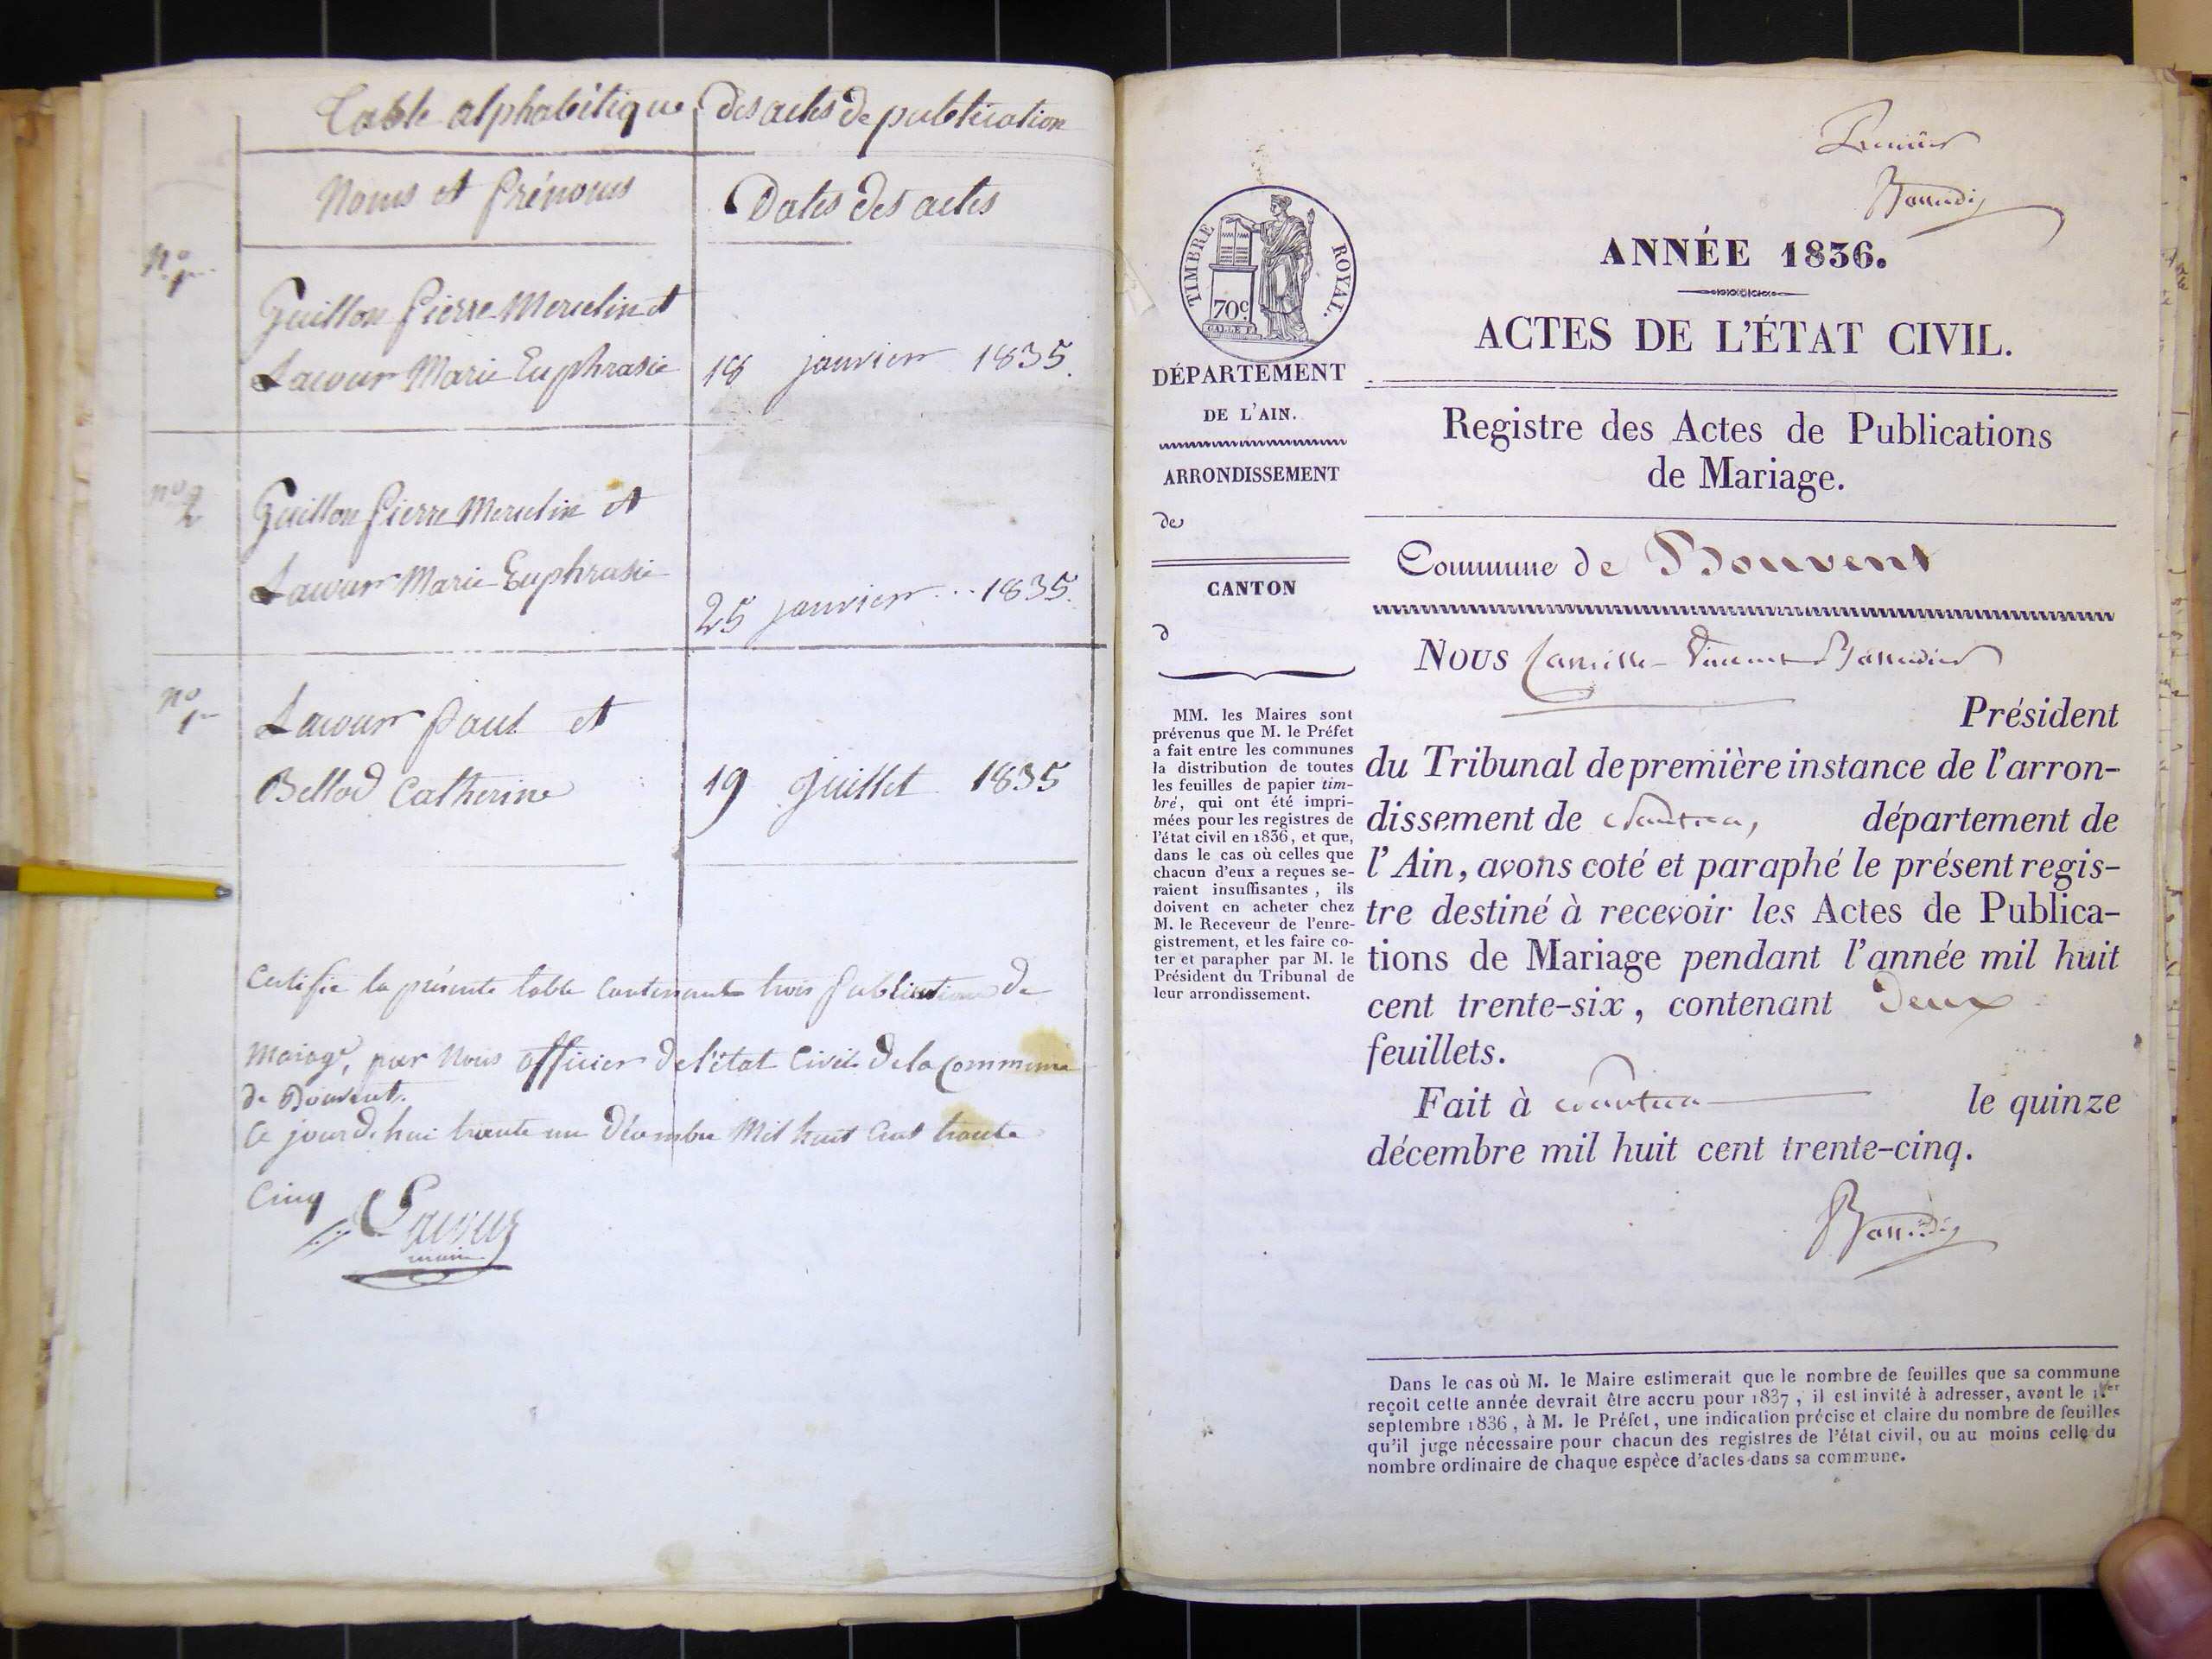 Table alphabétique des actes de publication
Noms et Prénoms
Dates des actes
No 1er
Guillon Pierre Mercelin et
Lacour Marie Euphrasie
18 janvier 1835.
no 2
Guillon Pierre Mercelin et
Lacour Marie Euphrasie
25 janvier .. 1835.
no 1er
Lacour Paul et
Bellod Catherine
19 Juillet 1835
Certifié la présente table contenant trois Publications de
Mariage, par Nous officier de l'état Civil de la Commune
de Bouvent.
Ce jourd'hui trente un Décembre Mil huit Cent trente
Cinq
Lacour
maire
Premier
TIMBRE ROYAL.
70c.
ANNÉE 1836.
ACTES DE L'ÉTAT CIVIL.
DÉPARTEMENT
DE L'AIN.
ARRONDISSEMENT
de
CANTON
d
MM. les Maires sont
prévenus que M. le Préfet
a fait entre les communes
la distribution de toutes
les feuilles de papier tim-
bré, qui ont été impri-
mées pour les registres de
l'état civil en 1836, et que,
dans le cas où celles que
chacun d'eux a reçues se-
raient insuffisantes, ils
doivent en acheter chez
M. le Receveur de l'enre-
gistrement, et les faire co-
ter et parapher par M. le
Président du Tribunal de
leur arrondissement.
Registre des Actes de Publications
de Mariage.
Commune de Bouvent
Nous Camille Vincent
Président
du Tribunal de première instance de l'arron-
dissement de Nantua, département de
l'Ain, avons coté et paraphé le présent regis-
tre destiné à recevoir les Actes de Publica-
tions de Mariage pendant l'année mil huit
cent trente-six, contenant Deux
feuillets.
Fait à Nantua le quinze
décembre mil huit cent trente-cinq.
Dans le cas où M. le Maire estimerait que le nombre de feuilles que sa commune
reçoit cette année devrait être accru pour 1837, il est invité à adresser, avant le 1.er
septembre 1836, à M. le Préfet, une indication précise et claire du nombre de feuilles
qu'il juge nécessaire pour chacun des registres de l'état civil, ou au moins celle du
nombre ordinaire de chaque espèce d'actes dans sa commune.